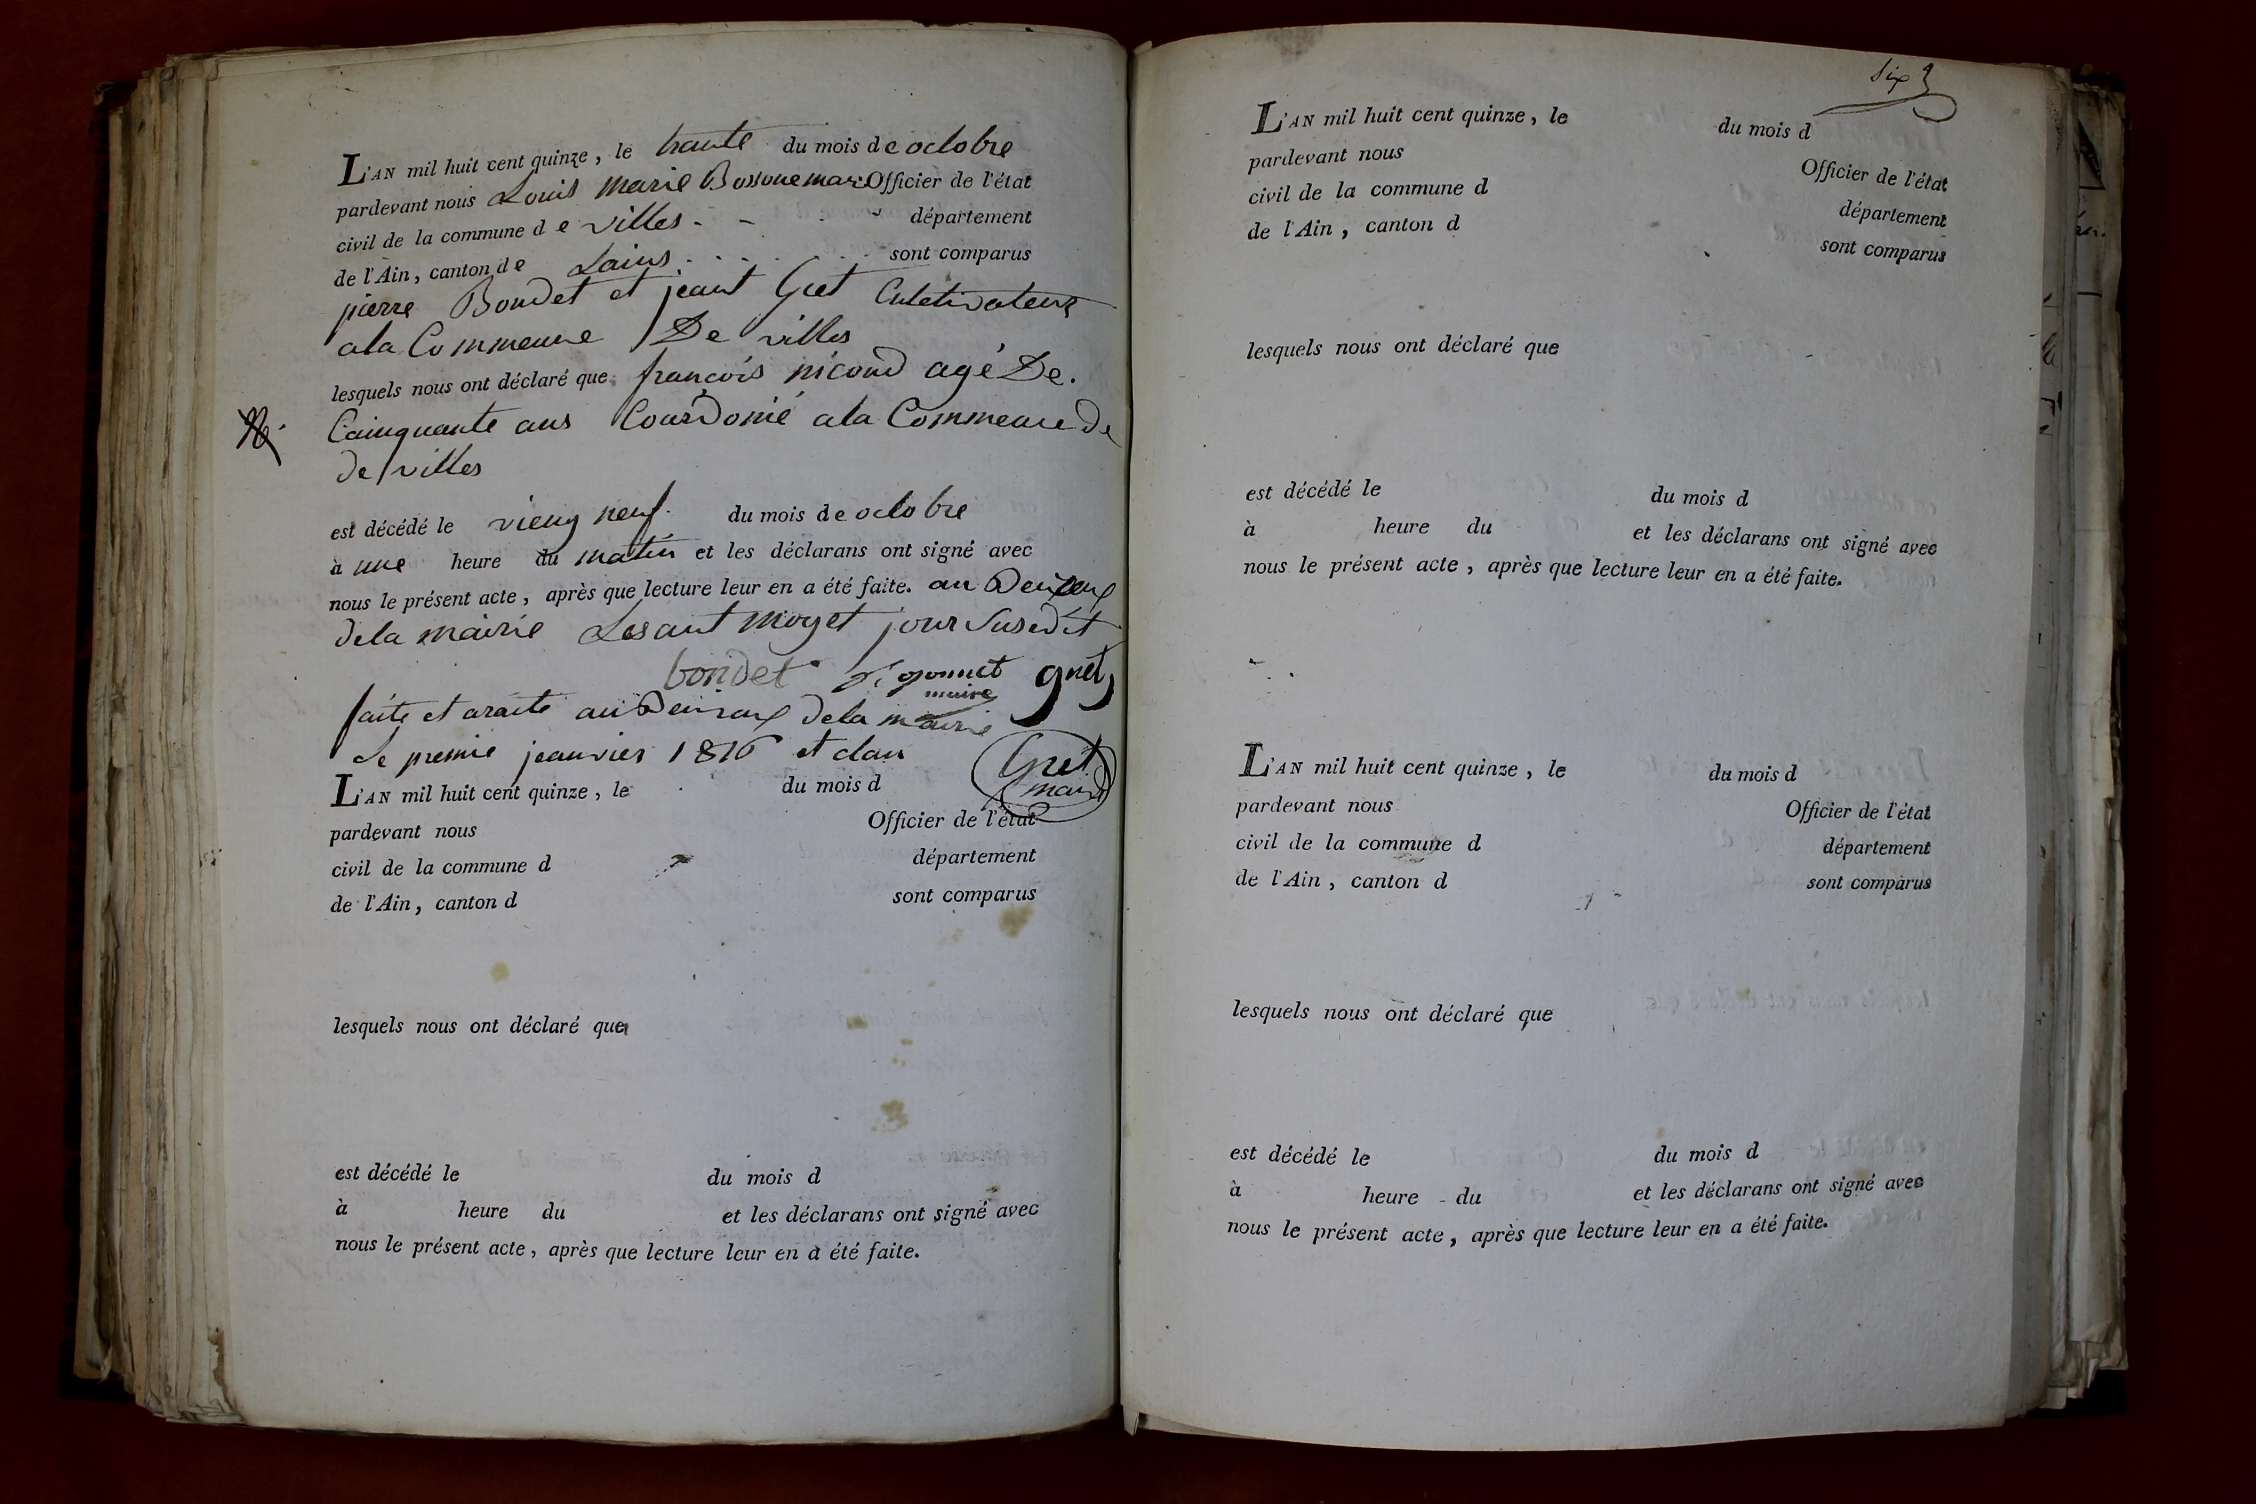 L'AN mil huit cent quinze, le trante du mois de octobre
pardevant nous Louis marie Bossonemaire Officier de l'état
civil de la commune de villes - - département
de l'Ain, canton de Laius sont comparus
pierre Bondet et jeant Gret Cultivateurs
ala Commeune De villes
lesquels nous ont déclaré que françois nicoud agé De.
Cainquante ans Courdonié ala Commeune De
de villes
est décédé le vieng neuf du mois de octobre
à une heure du matin et les déclarans ont signé avec
nous le présent acte, après que lecture leur en a été faite. au
dela mairie jour Susedit
bondet
maire
faite et araite au dela mairie
Le premie jeanvier 1816 et clau
Gret
maire
L'AN mil huit cent quinze, le du mois d
pardevant nous Officier de l'état
civil de la commune d département
de l'Ain, canton d sont comparus
lesquels nous ont déclaré que
est décédé le du mois d
à heure du et les déclarans ont signé avec
nous le présent acte, après que lecture leur en a été faite.
Six
L'AN mil huit cent quinze, le du mois d
pardevant nous Officier de l'état
civil de la commune d département
de l'Ain, canton d sont comparus
lesquels nous ont déclaré que
est décédé le du mois d
à heure du et les déclarans ont signé avec
nous le présent acte, après que lecture leur en a été faite.
L'AN mil huit cent quinze, le du mois d
pardevant nous Officier de l'état
civil de la commune d département
de l'Ain, canton d sont comparus
lesquels nous ont déclaré que
est décédé le du mois d
à heure du et les déclarans ont signé avec
nous le présent acte, après que lecture leur en a été faite.